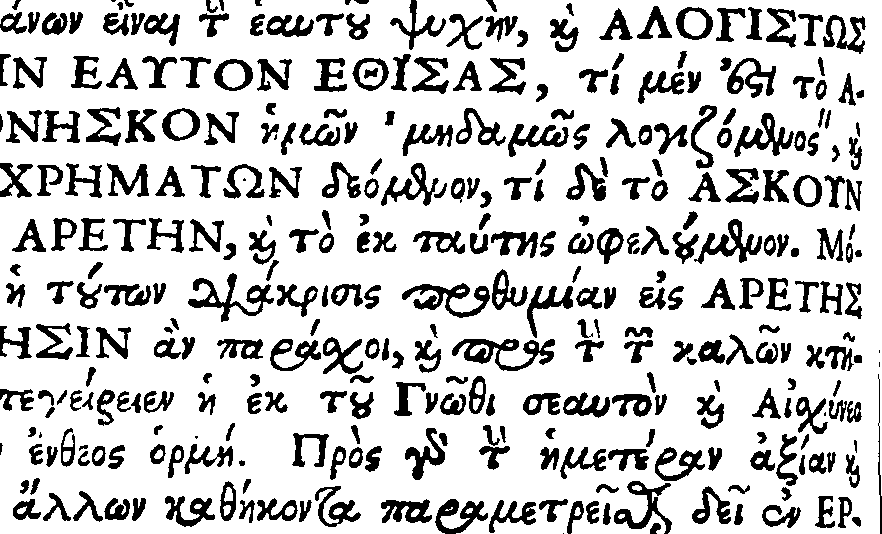 άνων εἶναι τὴν ἑαυτοῦ ψυχὴν, καὶ ΑΛΟΓΙΣΤΩΣ
ΙΝ ΕΑΥΤΟΝ ΕΘΙΣΑΣ, τί μέν ἐστι τὸ Α-
ΘΝΗΣΚΟΝ ἡμῶν ' μηδαμῶς λογιζόμενος", καὶ
ΧΡΗΜΑΤΩΝ δεόμενον, τί δὲ τὸ ΑΣΚΟΥΝ
ΑΡΕΤΗΝ, καὶ τὸ ἐκ ταύτης ὠφελούμενον. Μό-
ἡ τούτων διάκρισις προθυμίαν εἰς ΑΡΕΤΗΣ
ΗΣΙΝ ἂν παράχοι, καὶ πρὸς τὴν τῶν καλῶν κτῆ-
πεγείρειεν ἡ ἐκ τοῦ Γνῶθι σεαυτὸν καὶ Αἰσχύνεο
ἔνθεος ὁρμή. Πρὸς γὰρ τὴν ἡμετέραν ἀξίαν καὶ
ἄλλων καθήκοντα παραμετρεῖσθαι δεῖ ἐν ΕΡ-